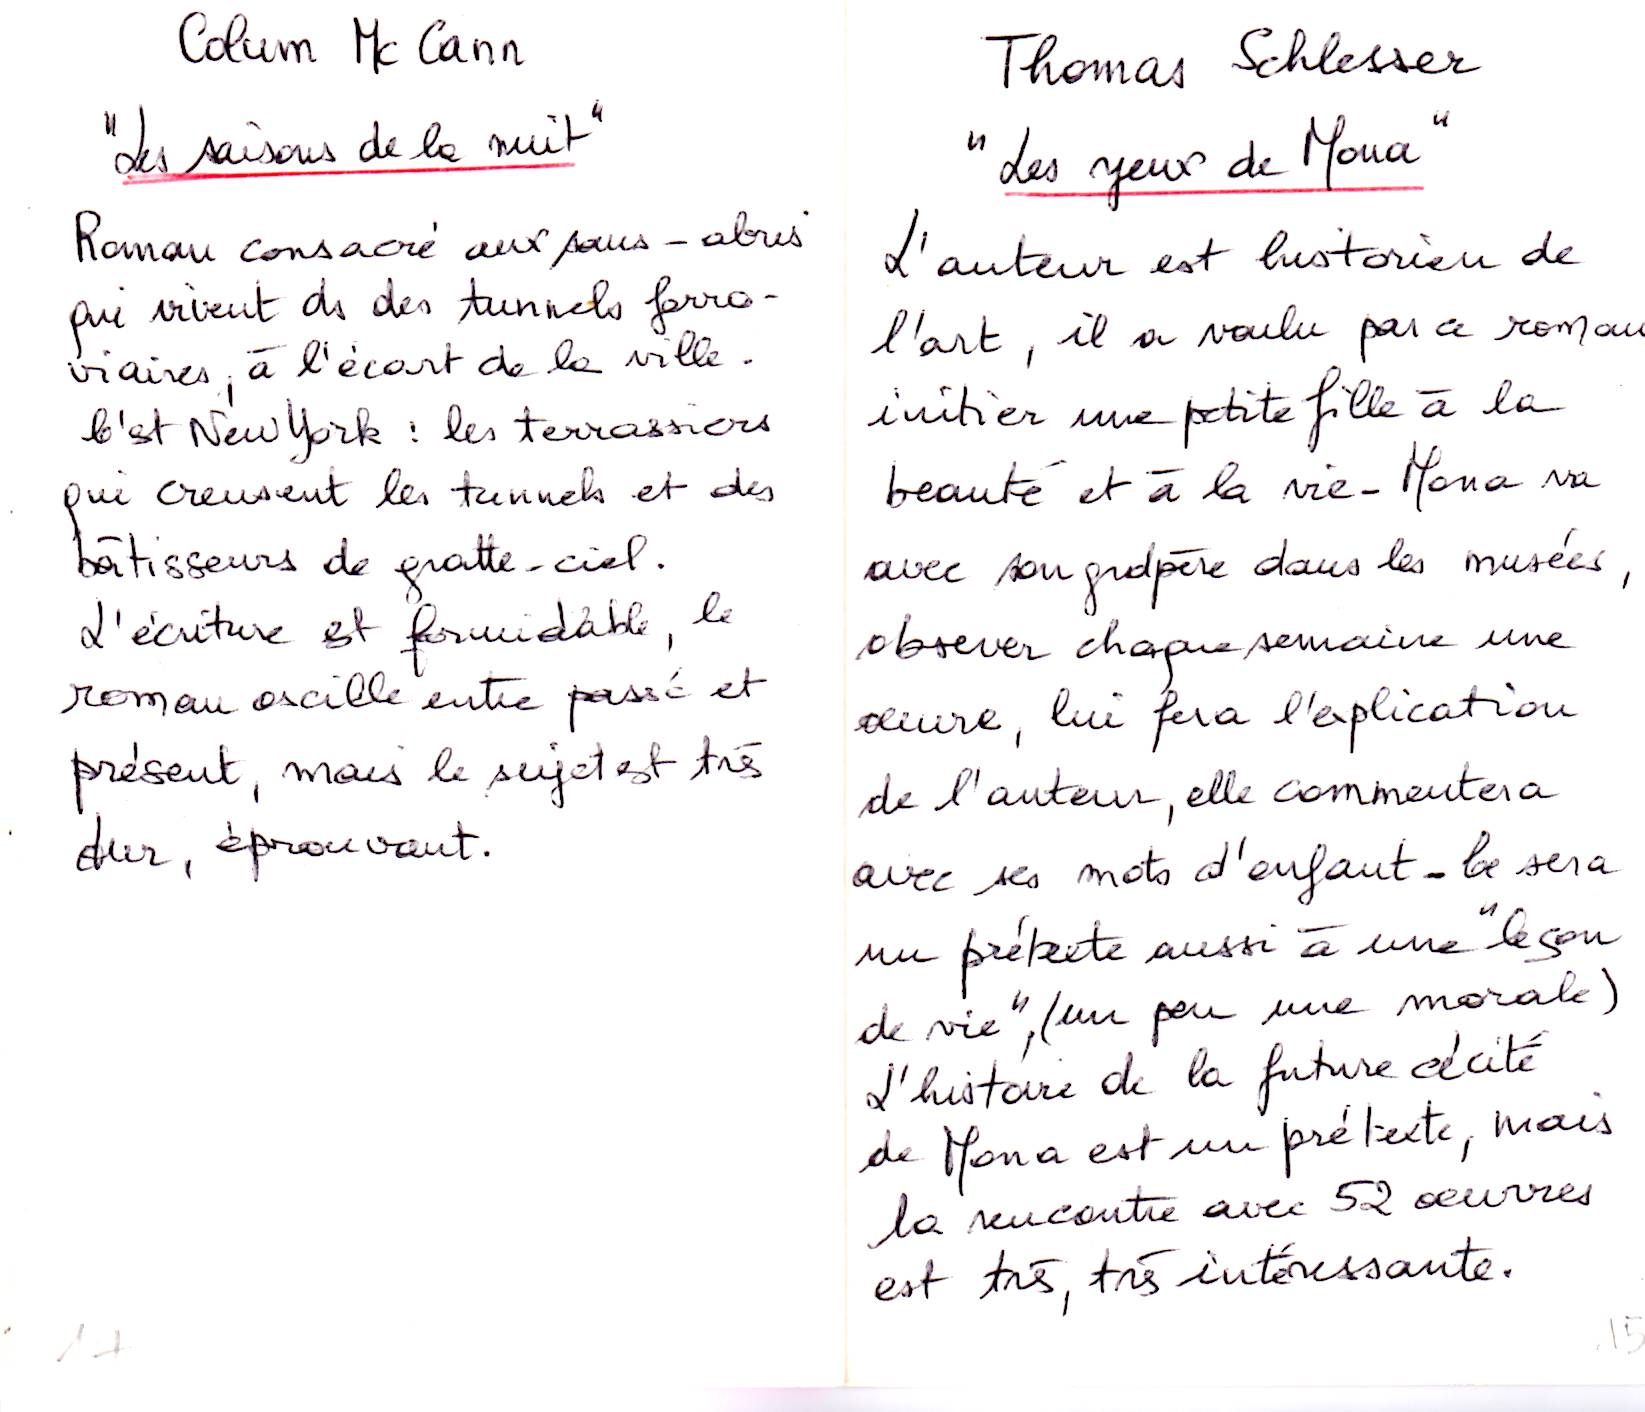 Colum Mc Cann
"Les saisons de la nuit"
Roman consacré aux sans-abris
qui vivent ds des tunnels ferro-
viaires, à l'écart de la ville.
C'est New York : les terrassiers
qui creusent les tunnels et des
bâtisseurs de gratte-ciel.
L'écriture est formidable, le
roman oscille entre passé et
présent, mais le sujet est très
dur, éprouvant.
Thomas Schlesser
"Les yeux de Mona"
L'auteur est historien de
l'art, il a voulu par ce roman
initier une petite fille à la
beauté et à la vie - Mona va
avec son grdpère dans les musées,
obsever chaque semaine une
œuvre, lui fera l'explication
de l'auteur, elle commentera
avec ses mots d'enfant - Ce sera
un prétexte aussi à une "leçon
de vie", (un peu une morale)
L'histoire de la future cécité
de Mona est un prétexte, mais
la rencontre avec 52 œuvres
est très, très intéressante.
15